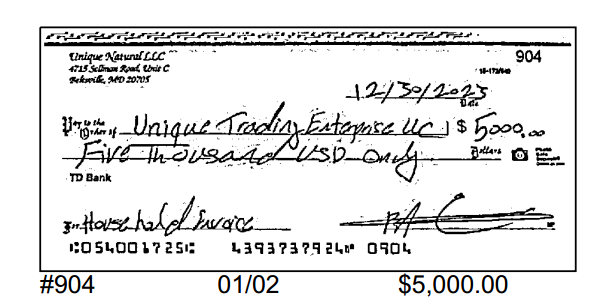 Unique Natural LLC 904
4715 Sellman Road, Unit C
Beltsville, MD 20705
12/30/2023
Date
Pay to the
Order of Unique Trading Enterprise LLC $ 5000.00
Five Thousand USD Only Dollars
TD Bank
For Household Invoice
⑆054001725⑆ 4393737924⑈ 0904
#904 01/02 $5,000.00